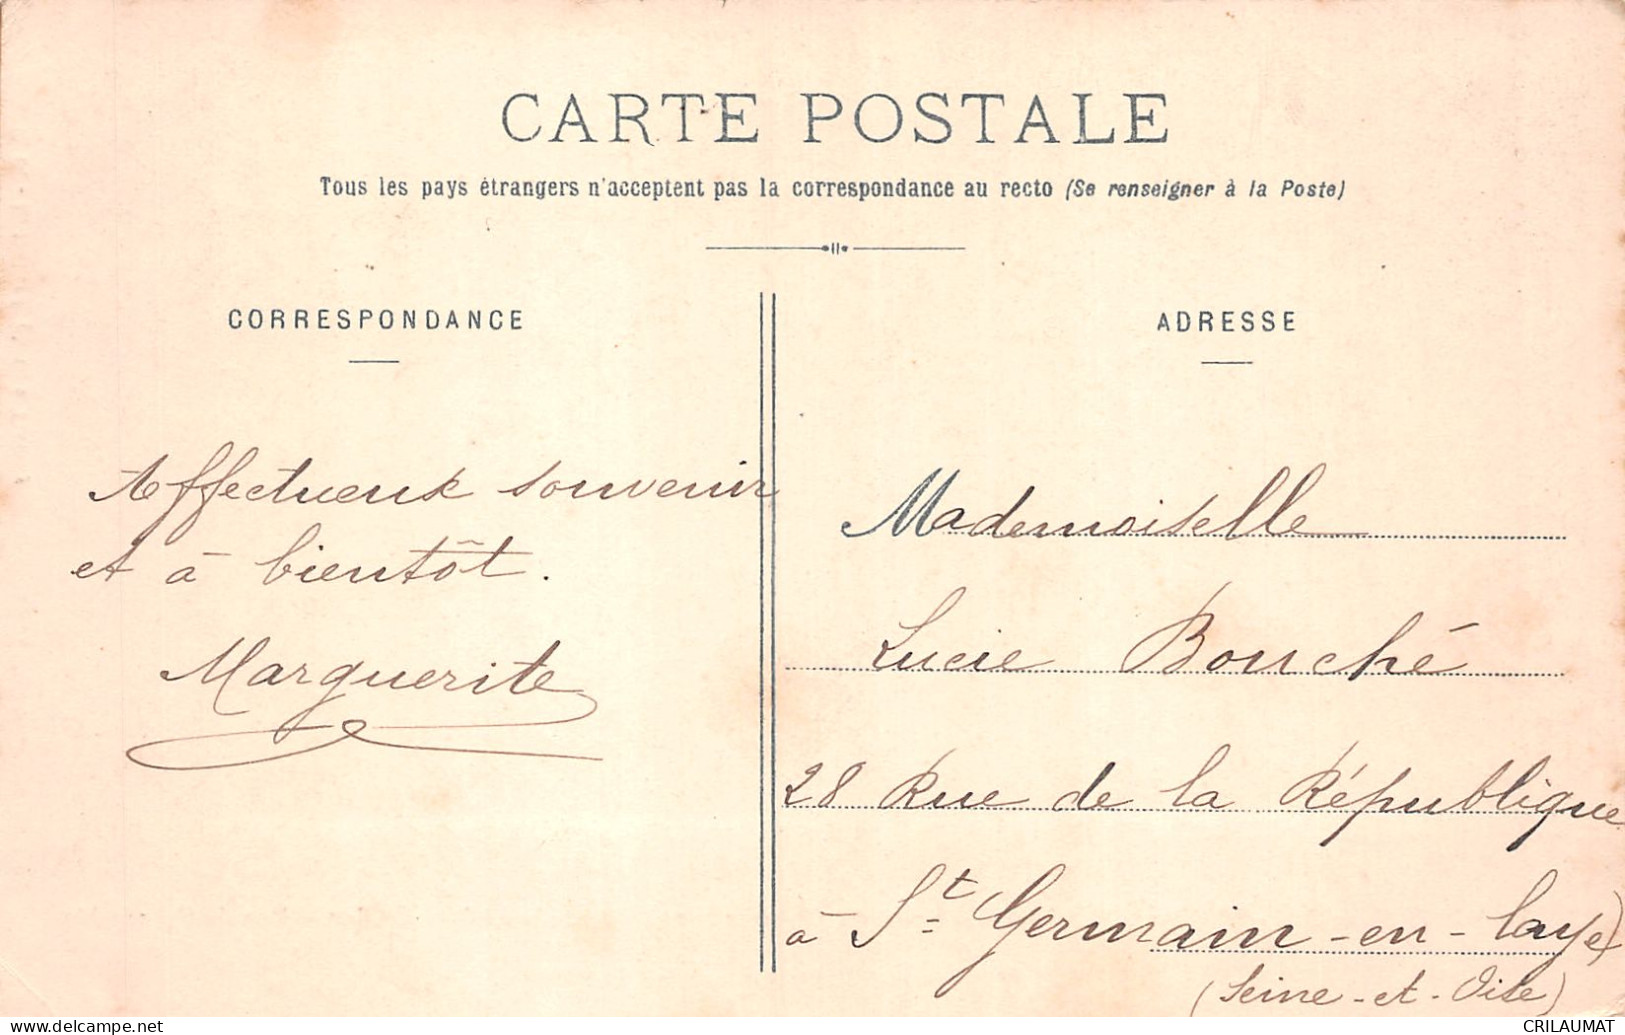 CARTE POSTALE
Tous les pays étrangers n'acceptent pas la correspondance au recto (Se renseigner à la Poste)
CORRESPONDANCE
Affectueux souvenir
et à bientôt.
Marguerite
ADRESSE
Mademoiselle
Lucie Bouché
28 Rue de la République
à St Germain-en-Laye
(Seine-et-Oise)
delcampe.net
CRILAUMAT